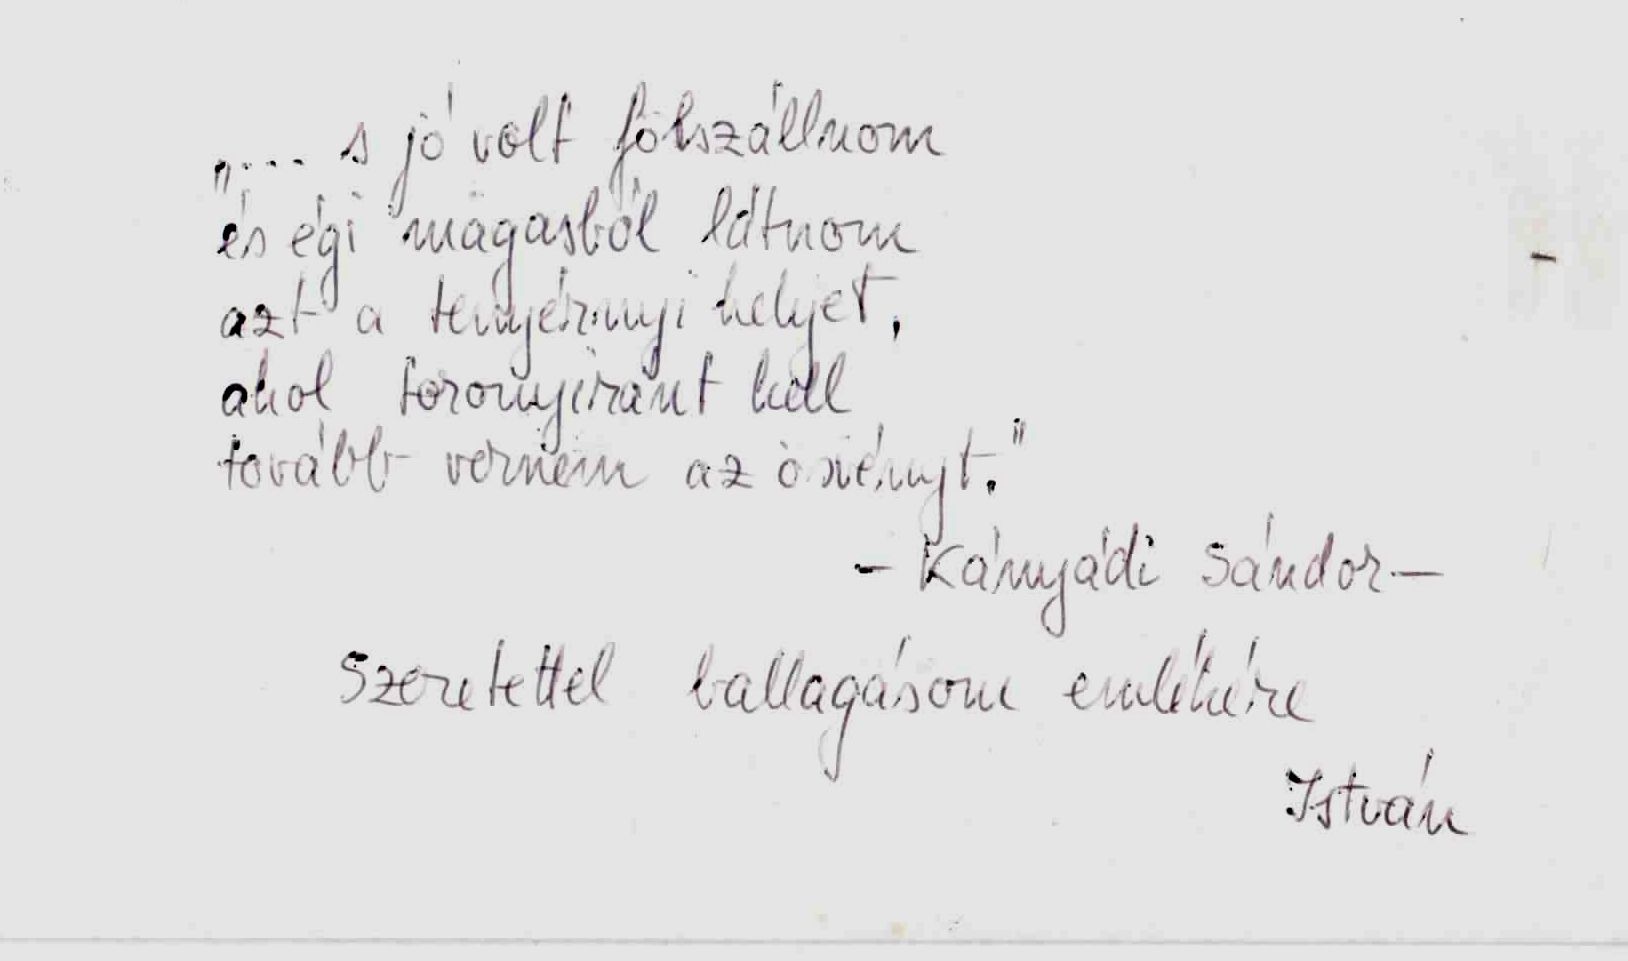 „.... s jó volt fölszállnom
és égi magasból látnom
azt a tenyérnyi helyet,
ahol toronyiránt kell
tovább vernem az ösvényt."
- Kányádi Sándor -
Szeretettel ballagásom emlékére
István